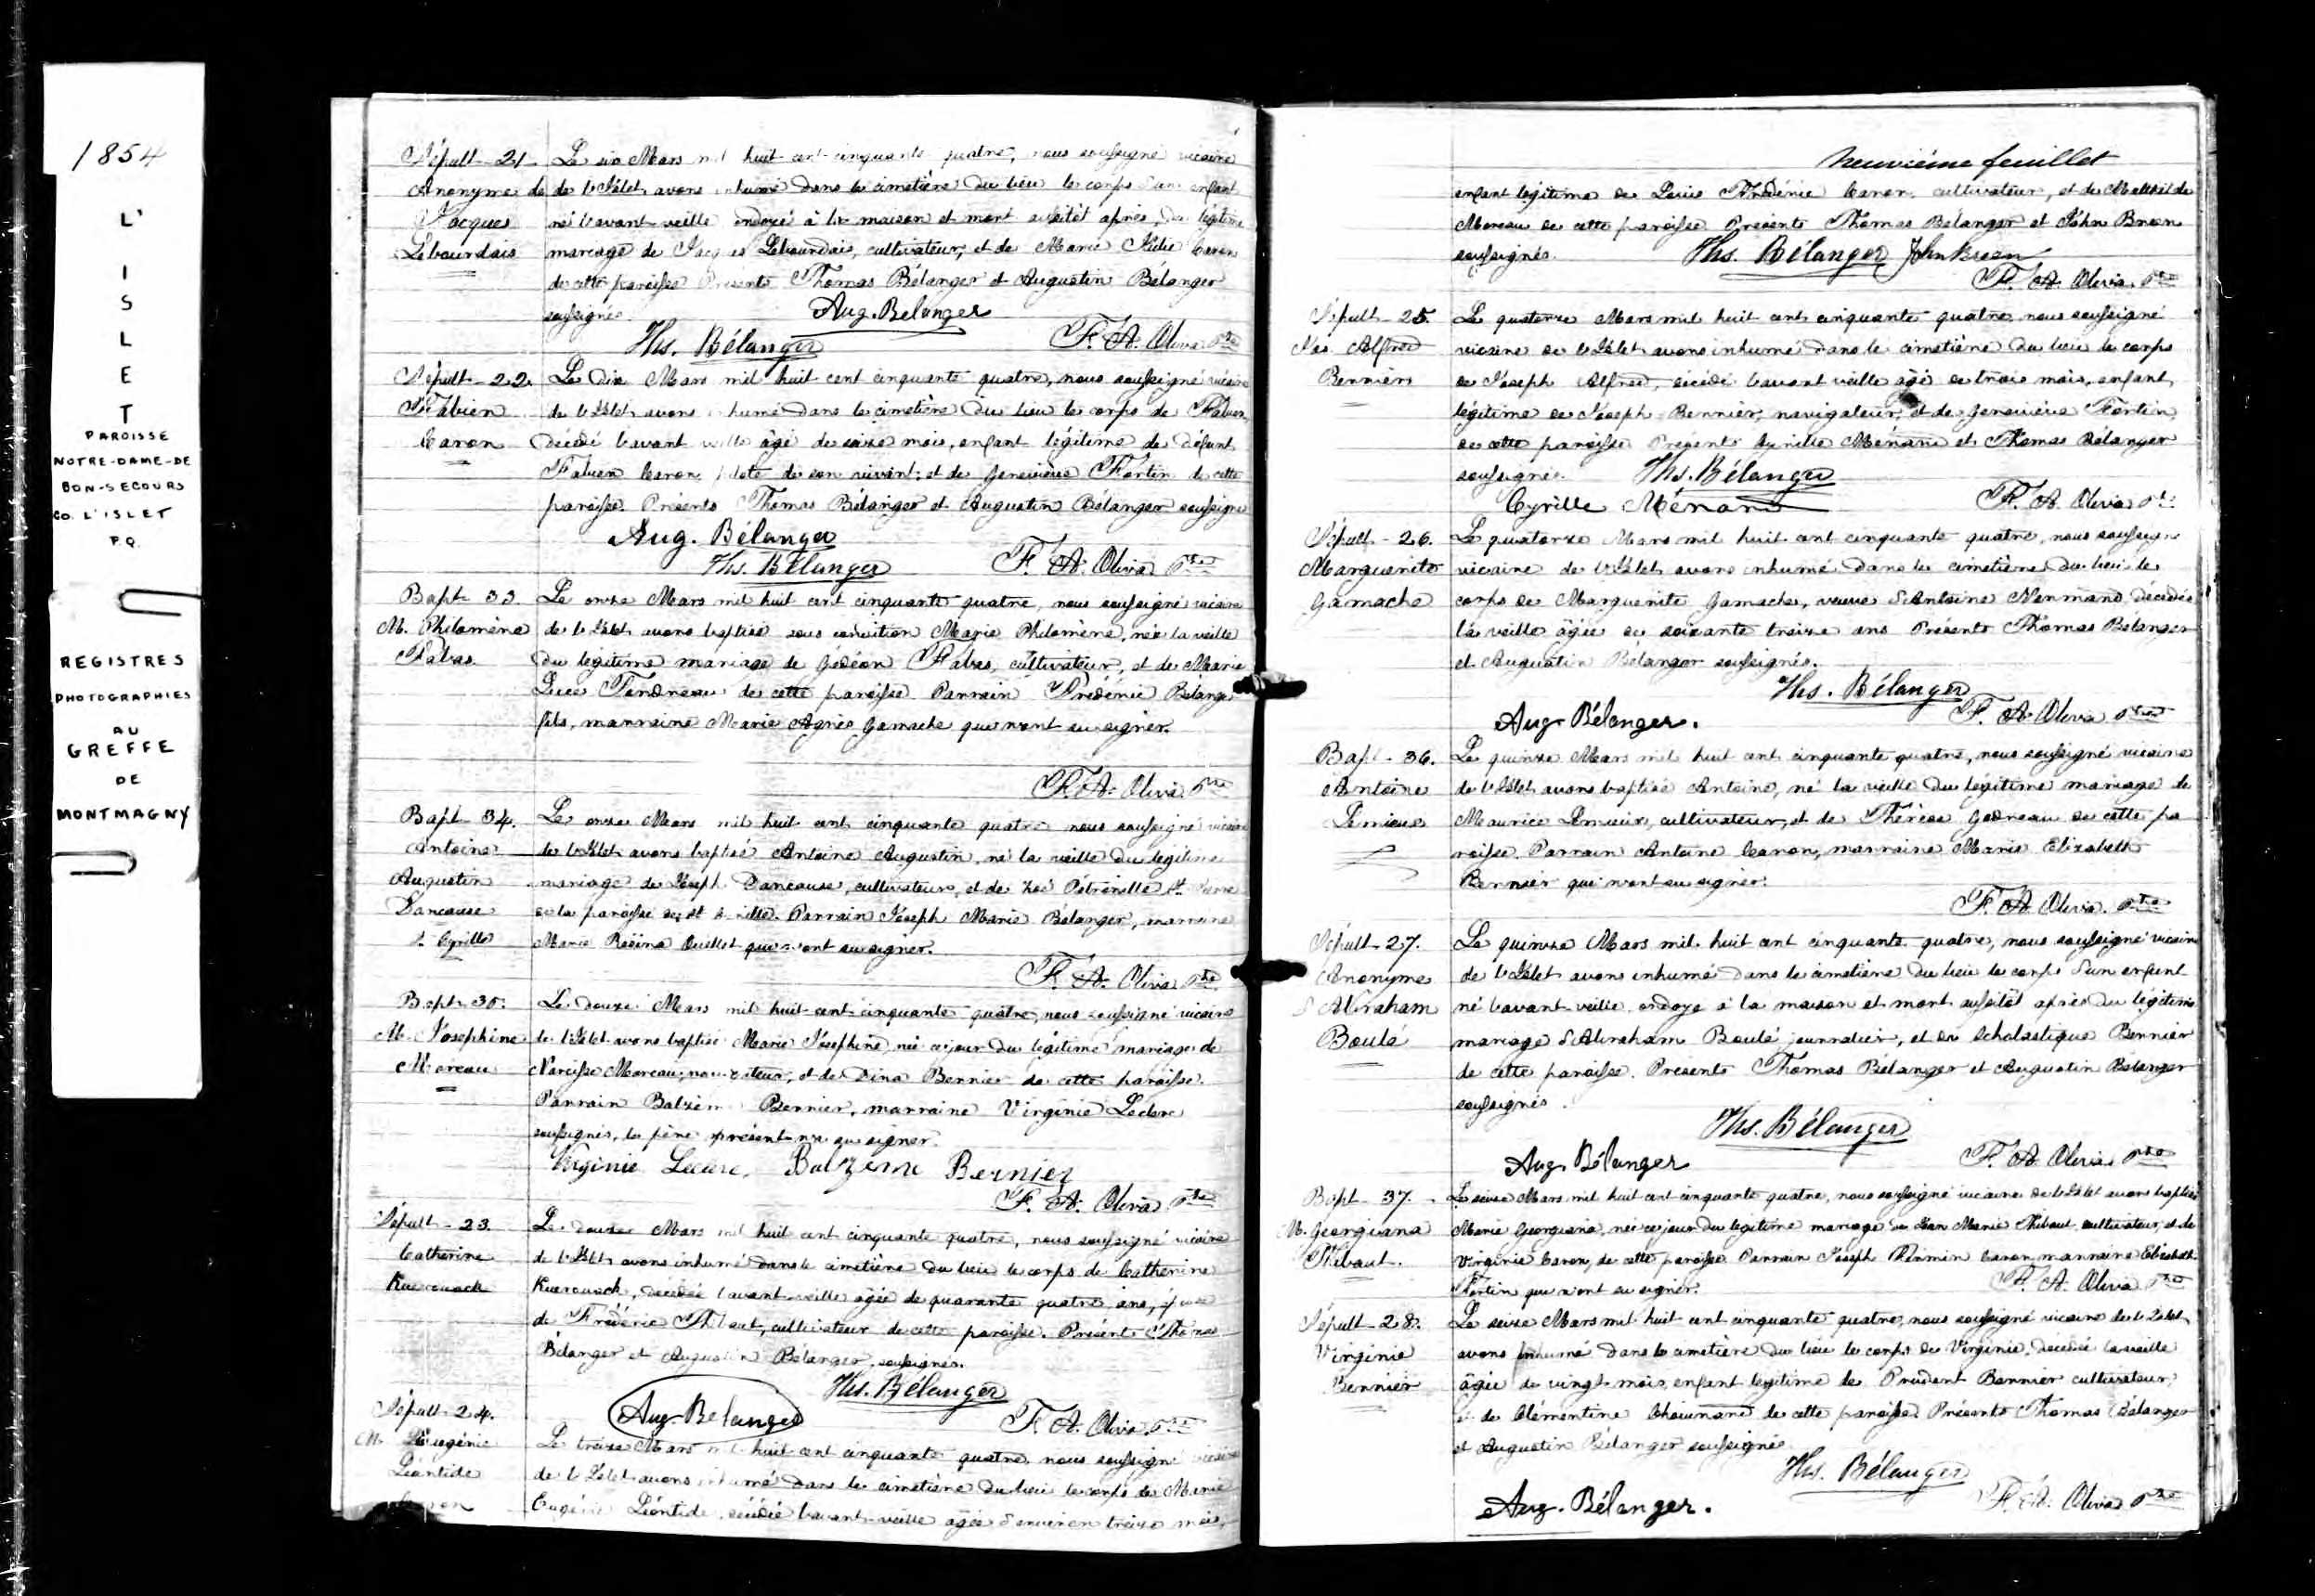 1854
L'
I
S
L
E
T
PAROISSE
NOTRE-DAME-DE
BON-SECOURS
CO. L'ISLET
P.Q.
REGISTRES
PHOTOGRAPHIES
AU
GREFFE
DE
MONTMAGNY
Sépult - 21 Le six Mars mil huit cent cinquante quatre, nous soussigné vicaire
Anonyme de de l'Islet avons inhumé dans le cimetière du lieu le corps d'un enfant
Jacques né l'avant veille ondoyé à la maison et mort aussitôt après, du légitime
Lebourdais mariage de Jacques Lebourdais, cultivateur, et de Marie Caron
de cette paroisse Présents Thomas Bélanger et Augustin Bélanger
soussignés. Aug. Belanger
Ths. Bélanger F. A. Oliva Ptre
Sépult - 22. Le dix Mars mil huit cent cinquante quatre, nous soussigné vicaire
Fabien de l'Islet avons inhumé dans le cimetière du lieu le corps de Fabien,
Caron décédé l'avant veille âgé de seize mois, enfant légitime de défunt
Fabien Caron pilote de son vivant, et de Geneviève Fortin de cette
paroisse. Présents Thomas Bélanger et Augustin Bélanger soussignés
Aug. Bélanger
Ths. Bélanger F. A. Oliva Ptre
Bapt. 33. Le onze Mars mil huit cent cinquante quatre, nous soussigné vicaire
M. Philomène de l'Islet avons baptisé sous condition Marie Philomène, née la veille
Fabas du légitime mariage de Gédéon Fabas, cultivateur, et de Marie
Luce de cette paroisse. Parrain Frédéric Bélanger
fils, marraine Marie Agnès Gamache qui n'ont su signer.
F. A. Oliva Ptre
Bapt 34. Le onze Mars mil huit cent cinquante quatre nous soussigné vicaire
Antoine de l'Islet avons baptisé Antoine Augustin, né la veille du légitime
Augustin mariage de Joseph Dancause, cultivateur, et de Zoé Pétronille St. Pierre
Dancause de la paroisse de St Cyrille. Parrain Joseph Marie Bélanger, marraine
St Cyrille Marie Ouellet qui n'ont su signer.
F. A. Oliva Ptre
Bapt. 35. Le douze Mars mil huit cent cinquante quatre, nous soussigné vicaire
M. Josephine de l'Islet avons baptisé Marie Joséphine, née ce jour du légitime mariage de
Moreau Narcisse Moreau, navigateur, et de Dina Bernier de cette paroisse.
Parrain Balzème Bernier, marraine Virginie Leclerc
soussignés, le père présent n'a su signer.
Virginie Leclerc. Balzeme Bernier
F. A. Oliva Ptre
Sépult - 23. Le douze Mars mil huit cent cinquante quatre, nous soussigné vicaire
Catherine de l'Islet avons inhumé dans le cimetière du lieu le corps de Catherine
Kuerouack Kuerouack, décédée l'avant veille âgée de quarante quatre ans, épouse
de Frédéric Thibaut, cultivateur de cette paroisse. Présents Thomas
Bélanger et Augustin Bélanger, soussignés.
Ths. Bélanger
Aug. Belanger F. A. Oliva Ptre
Sépult - 24.
M. Eugénie Le treize Mars mil huit cent cinquante quatre, nous soussigné vicaire
Léontide de l'Islet avons inhumé dans le cimetière du lieu le corps de Marie
Caron Eugénie Léontide, décédée l'avant-veille âgée d'environ treize mois,
neuvième feuillet
enfant légitime de Louis Frédéric Caron, cultivateur, et de Mathilde
Moreau de cette paroisse. Présents Thomas Bélanger et John Breen
soussignés. Ths. Bélanger John Breen
F. A. Oliva Ptre
Sépult - 25. Le quatorze Mars mil huit cent cinquante quatre, nous soussigné
Jos. Alfred vicaire de l'Islet avons inhumé dans le cimetière du lieu le corps
Bernier de Joseph Alfred, décédé l'avant veille âgé de trois mois, enfant
légitime de Joseph Bernier, navigateur, et de Geneviève Fortin
de cette paroisse. Présents Cyrille Ménard et Thomas Bélanger
soussignés. Ths. Bélanger
Cyrille Ménard F. A. Oliva Ptre
Sépult - 26. Le quatorze Mars mil huit cent cinquante quatre, nous soussigné
Marguerite vicaire de l'Islet avons inhumé dans le cimetière du lieu le
Gamache corps de Marguerite Gamache, veuve d'Antoine Normand décédée
la veille âgée de soixante treize ans Présents Thomas Bélanger
et Augustin Bélanger soussignés.
Ths. Bélanger
Aug. Bélanger. F. A. Oliva Ptre
Bapt - 36. Le quinze Mars mil huit cent cinquante quatre, nous soussigné vicaire
Antoine de l'Islet avons baptisé Antoine, né la veille du légitime mariage de
Lemieux Maurice Lemieux, cultivateur, et de Thérèse Godreau de cette pa
roisse. Parrain Antoine Caron, marraine Marie Elizabeth
Bernier qui n'ont su signer.
F. A. Oliva. Ptre
Sépult - 27. Le quinze Mars mil huit cent cinquante quatre, nous soussigné vicaire
Anonyme de l'Islet avons inhumé dans le cimetière du lieu le corps d'un enfant
d'Abraham né l'avant veille ondoyé à la maison et mort aussitôt après du légitime
Boulé mariage d'Abraham Boulé, journalier, et de Scholastique Bernier
de cette paroisse. Présents Thomas Bélanger et Augustin Bélanger
soussignés.
Ths. Bélanger
Aug. Bélanger F. A. Oliva Ptre
Bapt - 37. Le seize Mars mil huit cent cinquante quatre, nous soussigné vicaire de l'Islet avons baptisé
M. Georgiana Marie Georgiana, née ce jour du légitime mariage de Jean Marie Thibaut, cultivateur, et de
Thibaut. Virginie Caron, de cette paroisse. Parrain Joseph Firmin Caron, marraine Elizabeth
Fortin qui n'ont su signer. F. A. Oliva Ptre
Sépult - 28. Le seize Mars mil huit cent cinquante quatre, nous soussigné vicaire de l'Islet,
Virginie avons inhumé dans le cimetière du lieu le corps de Virginie, décédée la veille
Bernier âgée de vingt mois, enfant légitime de Prudent Bernier cultivateur
et de Clémentine Chouinard de cette paroisse. Présents Thomas Bélanger
et Augustin Bélanger soussignés
Ths. Bélanger
Aug. Bélanger. F. A. Oliva Ptre